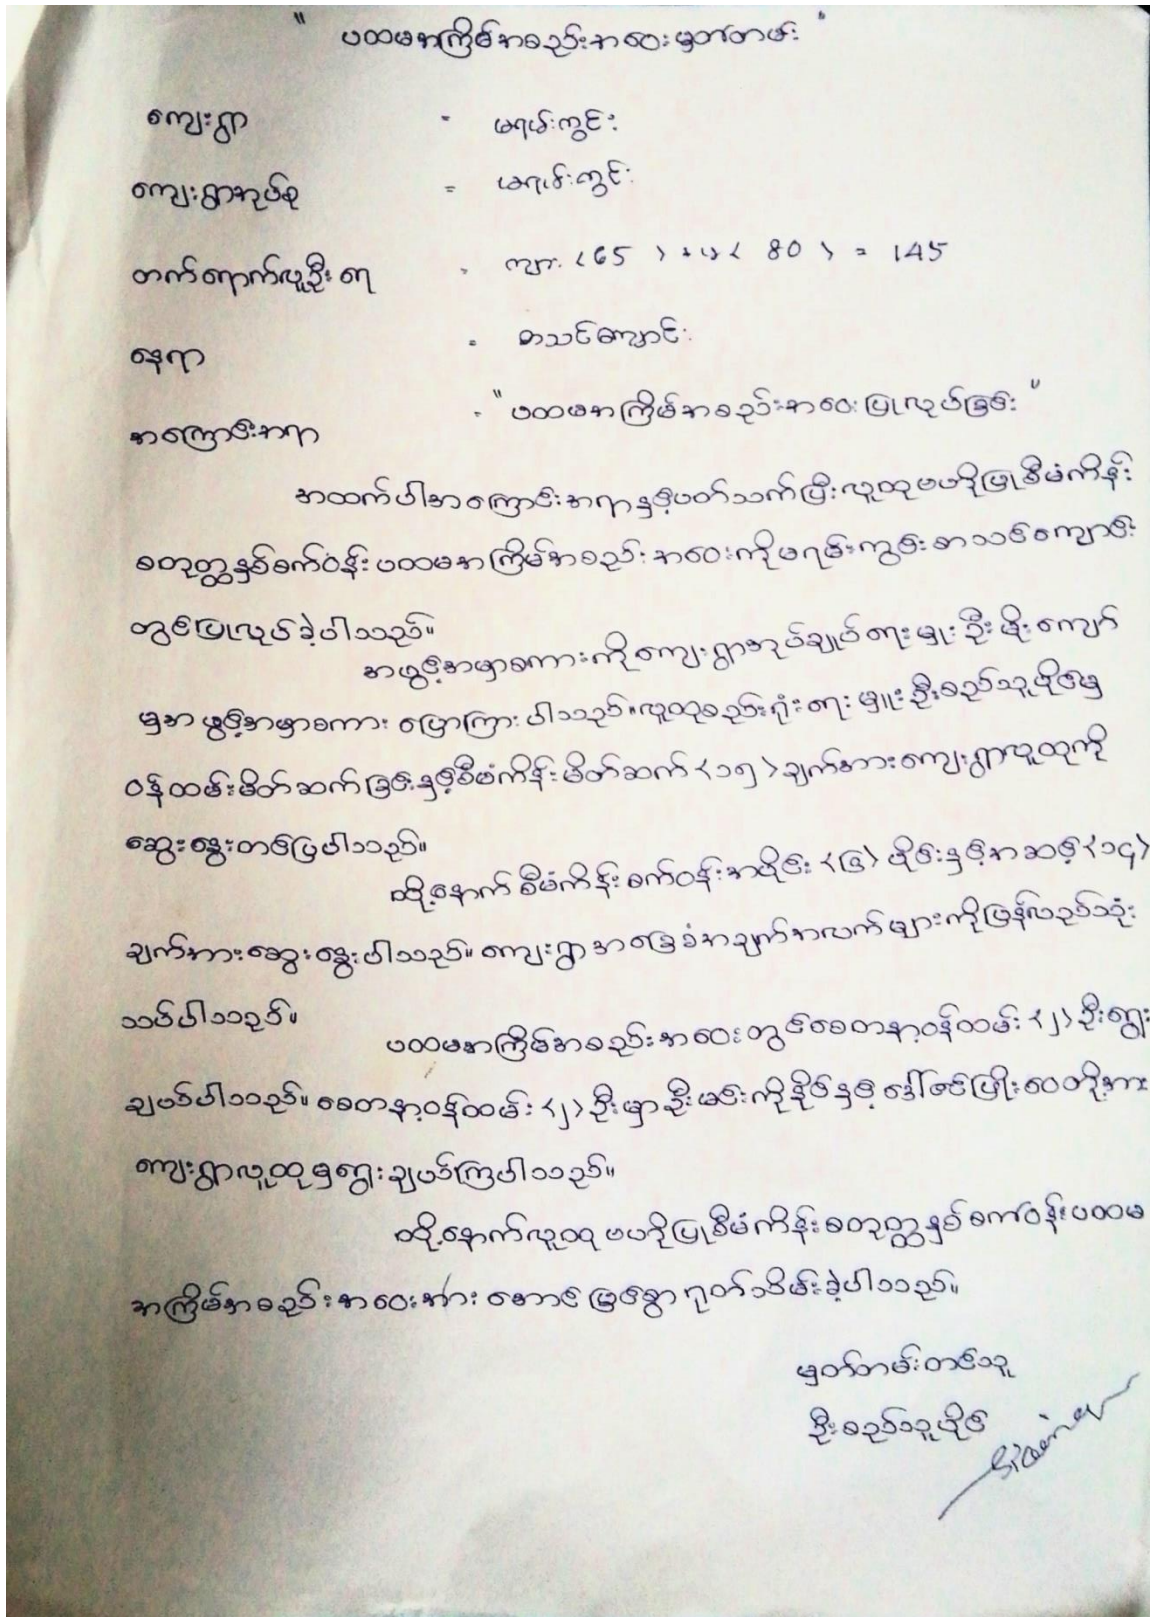 " ပထမအကြိမ်အစည်းအဝေးမှတ်တမ်း "
ကျေးရွာ = မရမ်းကွင်း
ကျေးရွာအုပ်စု = မရမ်းကွင်း
တက်ရောက်လူဦးရေ = ကျား < 65 > + မ < 80 > = 145
နေရာ = စာသင်ကျောင်း
အကြောင်းအရာ = " ပထမအကြိမ်အစည်းအဝေးပြုလုပ်ခြင်း "
အထက်ပါအကြောင်းအရာနှင့်ပတ်သက်ပြီးလူထုဗဟိုပြုစီမံကိန်း
စတုတ္ထနှစ်စက်ဝန်းပထမအကြိမ်အစည်းအဝေးကိုမရမ်းကွင်းစာသင်ကျောင်း
တွင်ပြုလုပ်ခဲ့ပါသည်။
အဖွင့်အမှာစကားကိုကျေးရွာအုပ်ချုပ်ရေးမှူးဦးမိုးကျော်
မှအဖွင့်အမှာစကားပြောကြားပါသည်။လူထုစည်းရုံးရေးမှူးဦးစည်သူပိုင်မှ
ဝန်ထမ်းမိတ်ဆက်ခြင်းနှင့်စီမံကိန်းမိတ်ဆက် <၁၅> ချက်အားကျေးရွာလူထုကို
ဆွေးနွေးတင်ပြပါသည်။
ထို့နောက်စီမံကိန်းစက်ဝန်းအပိုင်း <၆> ပိုင်းနှင့်အဆင့် <၁၄>
ချက်အားဆွေးနွေးပါသည်။ ကျေးရွာအခြေခံအချက်အလက်များကိုပြန်လည်သုံး
သပ်ပါသည်။
ပထမအကြိမ်အစည်းအဝေးတွင်စေတနာ့ဝန်ထမ်း <၂> ဦးရွေး
ချယ်ပါသည်။ စေတနာ့ဝန်ထမ်း <၂> ဦးမှာဦးမင်းကိုနိုင်နှင့် ဒေါ်ဇင်ဖြိုးဝေတို့အား
ကျေးရွာလူထုမှရွေးချယ်ကြပါသည်။
ထို့နောက်လူထုဗဟိုပြုစီမံကိန်းစတုတ္ထနှစ်စက်ဝန်းပထမ
အကြိမ်အစည်းအဝေးအားအောင်မြင်စွာရုတ်သိမ်းခဲ့ပါသည်။
မှတ်တမ်းတင်သူ
ဦးစည်သူပိုင်